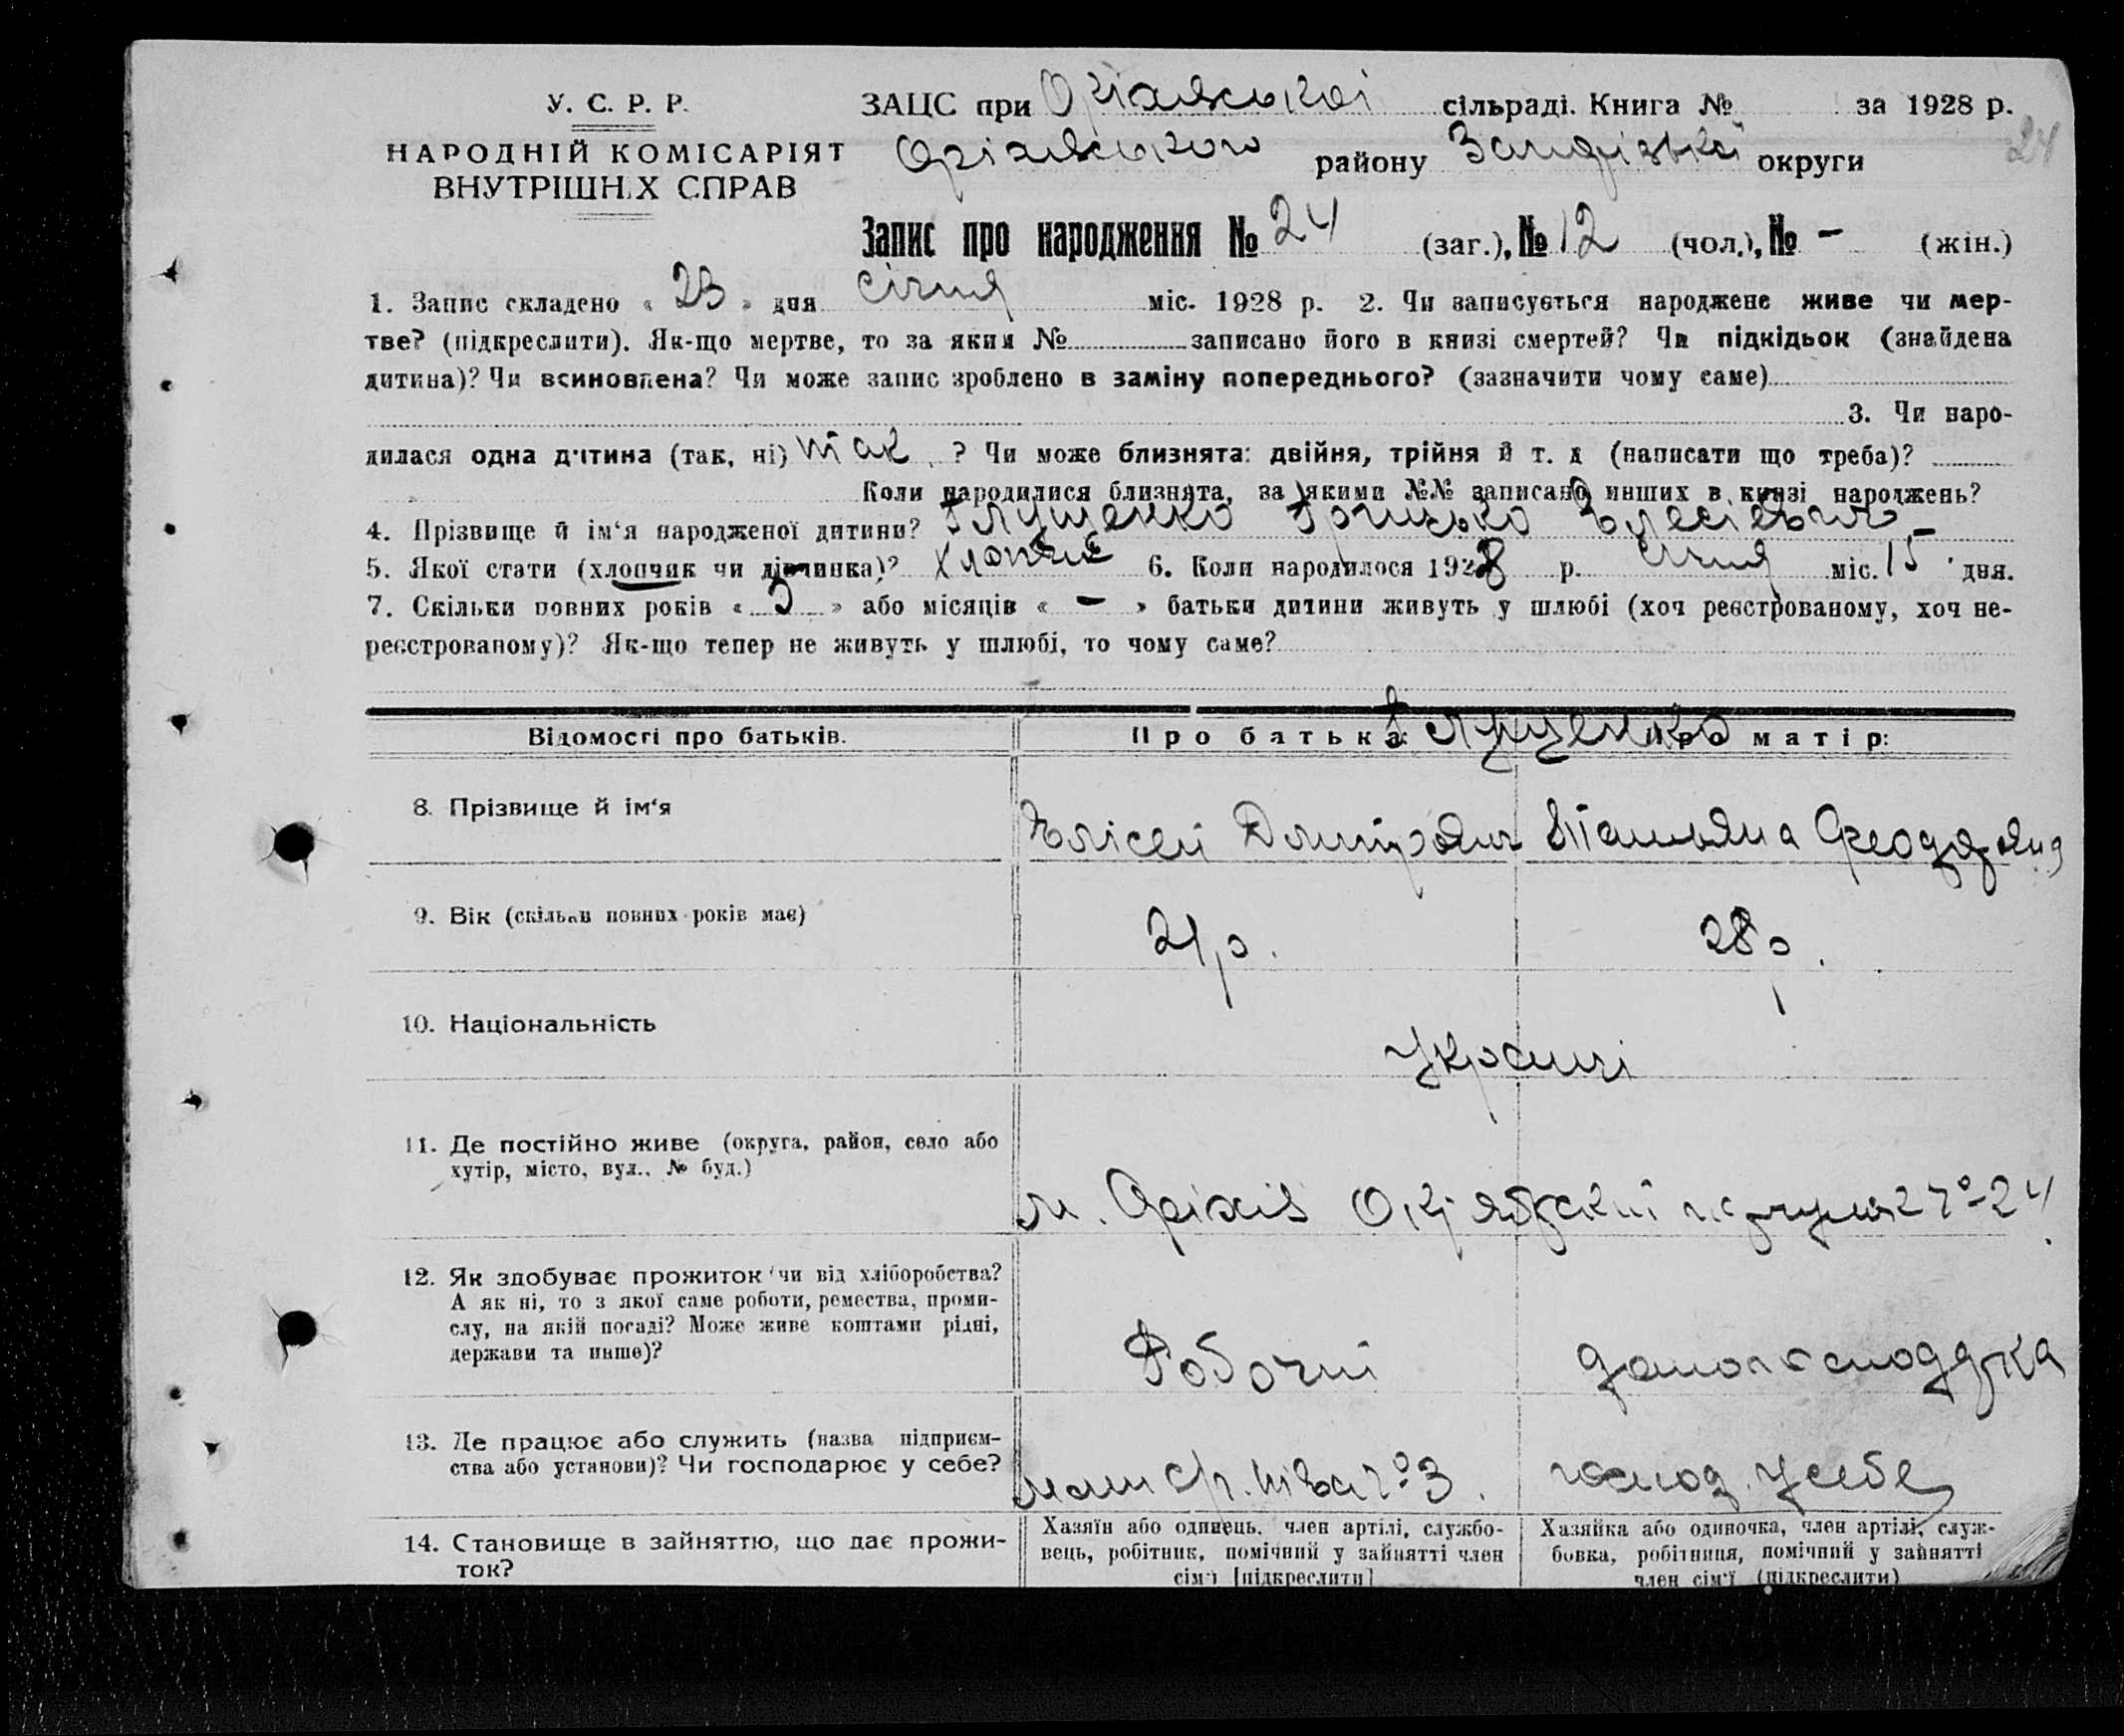 У. С. Р. Р.
НАРОДНІЙ КОМІСАРІЯТ
ВНУТРІШНІХ СПРАВ
ЗАЦС при Оріхівської сільраді. Книга № за 1928 р.
Оріхівського району Запорізької округи
24
Запис про народження № 24 (заг.), № 12 (чол.), № - (жін.)
1. Запис складено « 23 » дня січня міс. 1928 р. 2. Чи записується народжене живе чи мер-
тве? (підкреслити). Як-що мертве, то за яким № записано його в книзі смертей? Чи підкідьок (знайдена
дитина)? Чи всиновлена? Чи може запис зроблено в заміну попереднього? (зазначити чому саме)
3. Чи наро-
дилася одна дитина (так, ні) так ? Чи може близнята: двійня, трійня й т. д (написати що треба)?
Коли народилися близнята, за якими №№ записано инших в книзі народжень?
4. Прізвище й ім‘я народженої дитини? Глущенко Грицько
5. Якої стати (хлопчик чи дівчинка)? 6. Коли народилося 1928 р. січня міс. 15 дня.
7. Скільки повних років « 5 » або місяців « - » батьки дитини живуть у шлюбі (хоч реєстрованому, хоч не-
реєстрованому)? Як-що тепер не живуть у шлюбі, то чому саме?
Відомості про батьків. Про батька: Про матір:
Глущенко
8. Прізвище й ім‘я Елісей Дмитрович Татьяна Феодоровна
9. Вік (скільки повних років має) 21 р. 28 р.
10. Національність Українці
11. Де постійно живе (округа, район, село або
хутір, місто, вул., № буд.)
м. Оріхів 24
12. Як здобуває прожиток чи від хліборобства?
А як ні, то з якої саме роботи, ремества, проми-
слу, на якій посаді? Може живе коштами рідні,
держави та инше)?
Робочий домогосподарка
13. Де працює або служить (назва підприєм-
ства або установи)? Чи господарює у себе?
№ 3. господ. у себе
14. Становище в зайняттю, що дає прожи-
ток?
Хазяїн або одинець, член артілі, службо-
вець, робітник, помічний у зайнятті член
сім‘ї [підкреслити]
Хазяйка або одиночка, член артілі, служ-
бовка, робітниця, помічний у зайнятті
член сім‘ї (підкреслити)